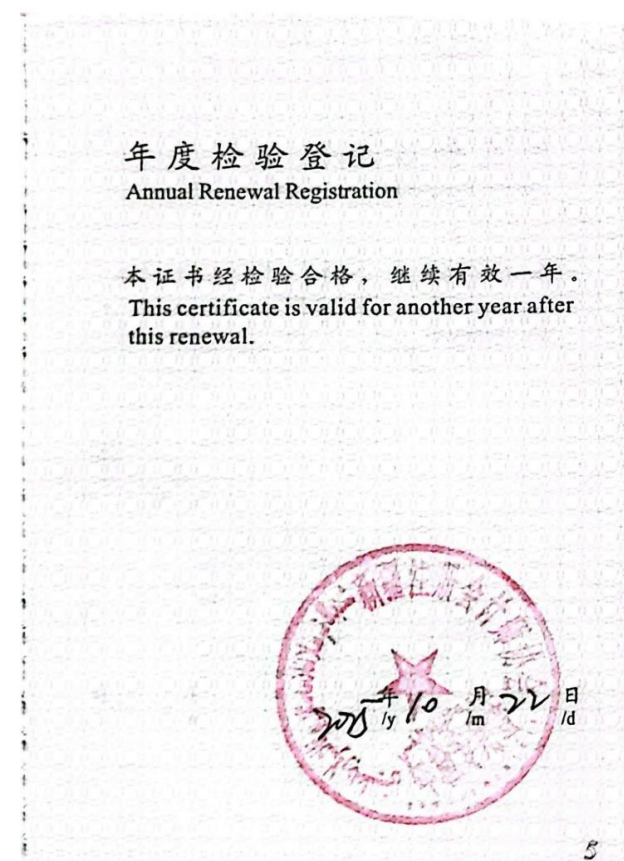 年度检验登记
Annual Renewal Registration
本证书经检验合格，继续有效一年。
This certificate is valid for another year after
this renewal.
新疆注册会计师协会
年 10 月 22 日
/y /m /d
5